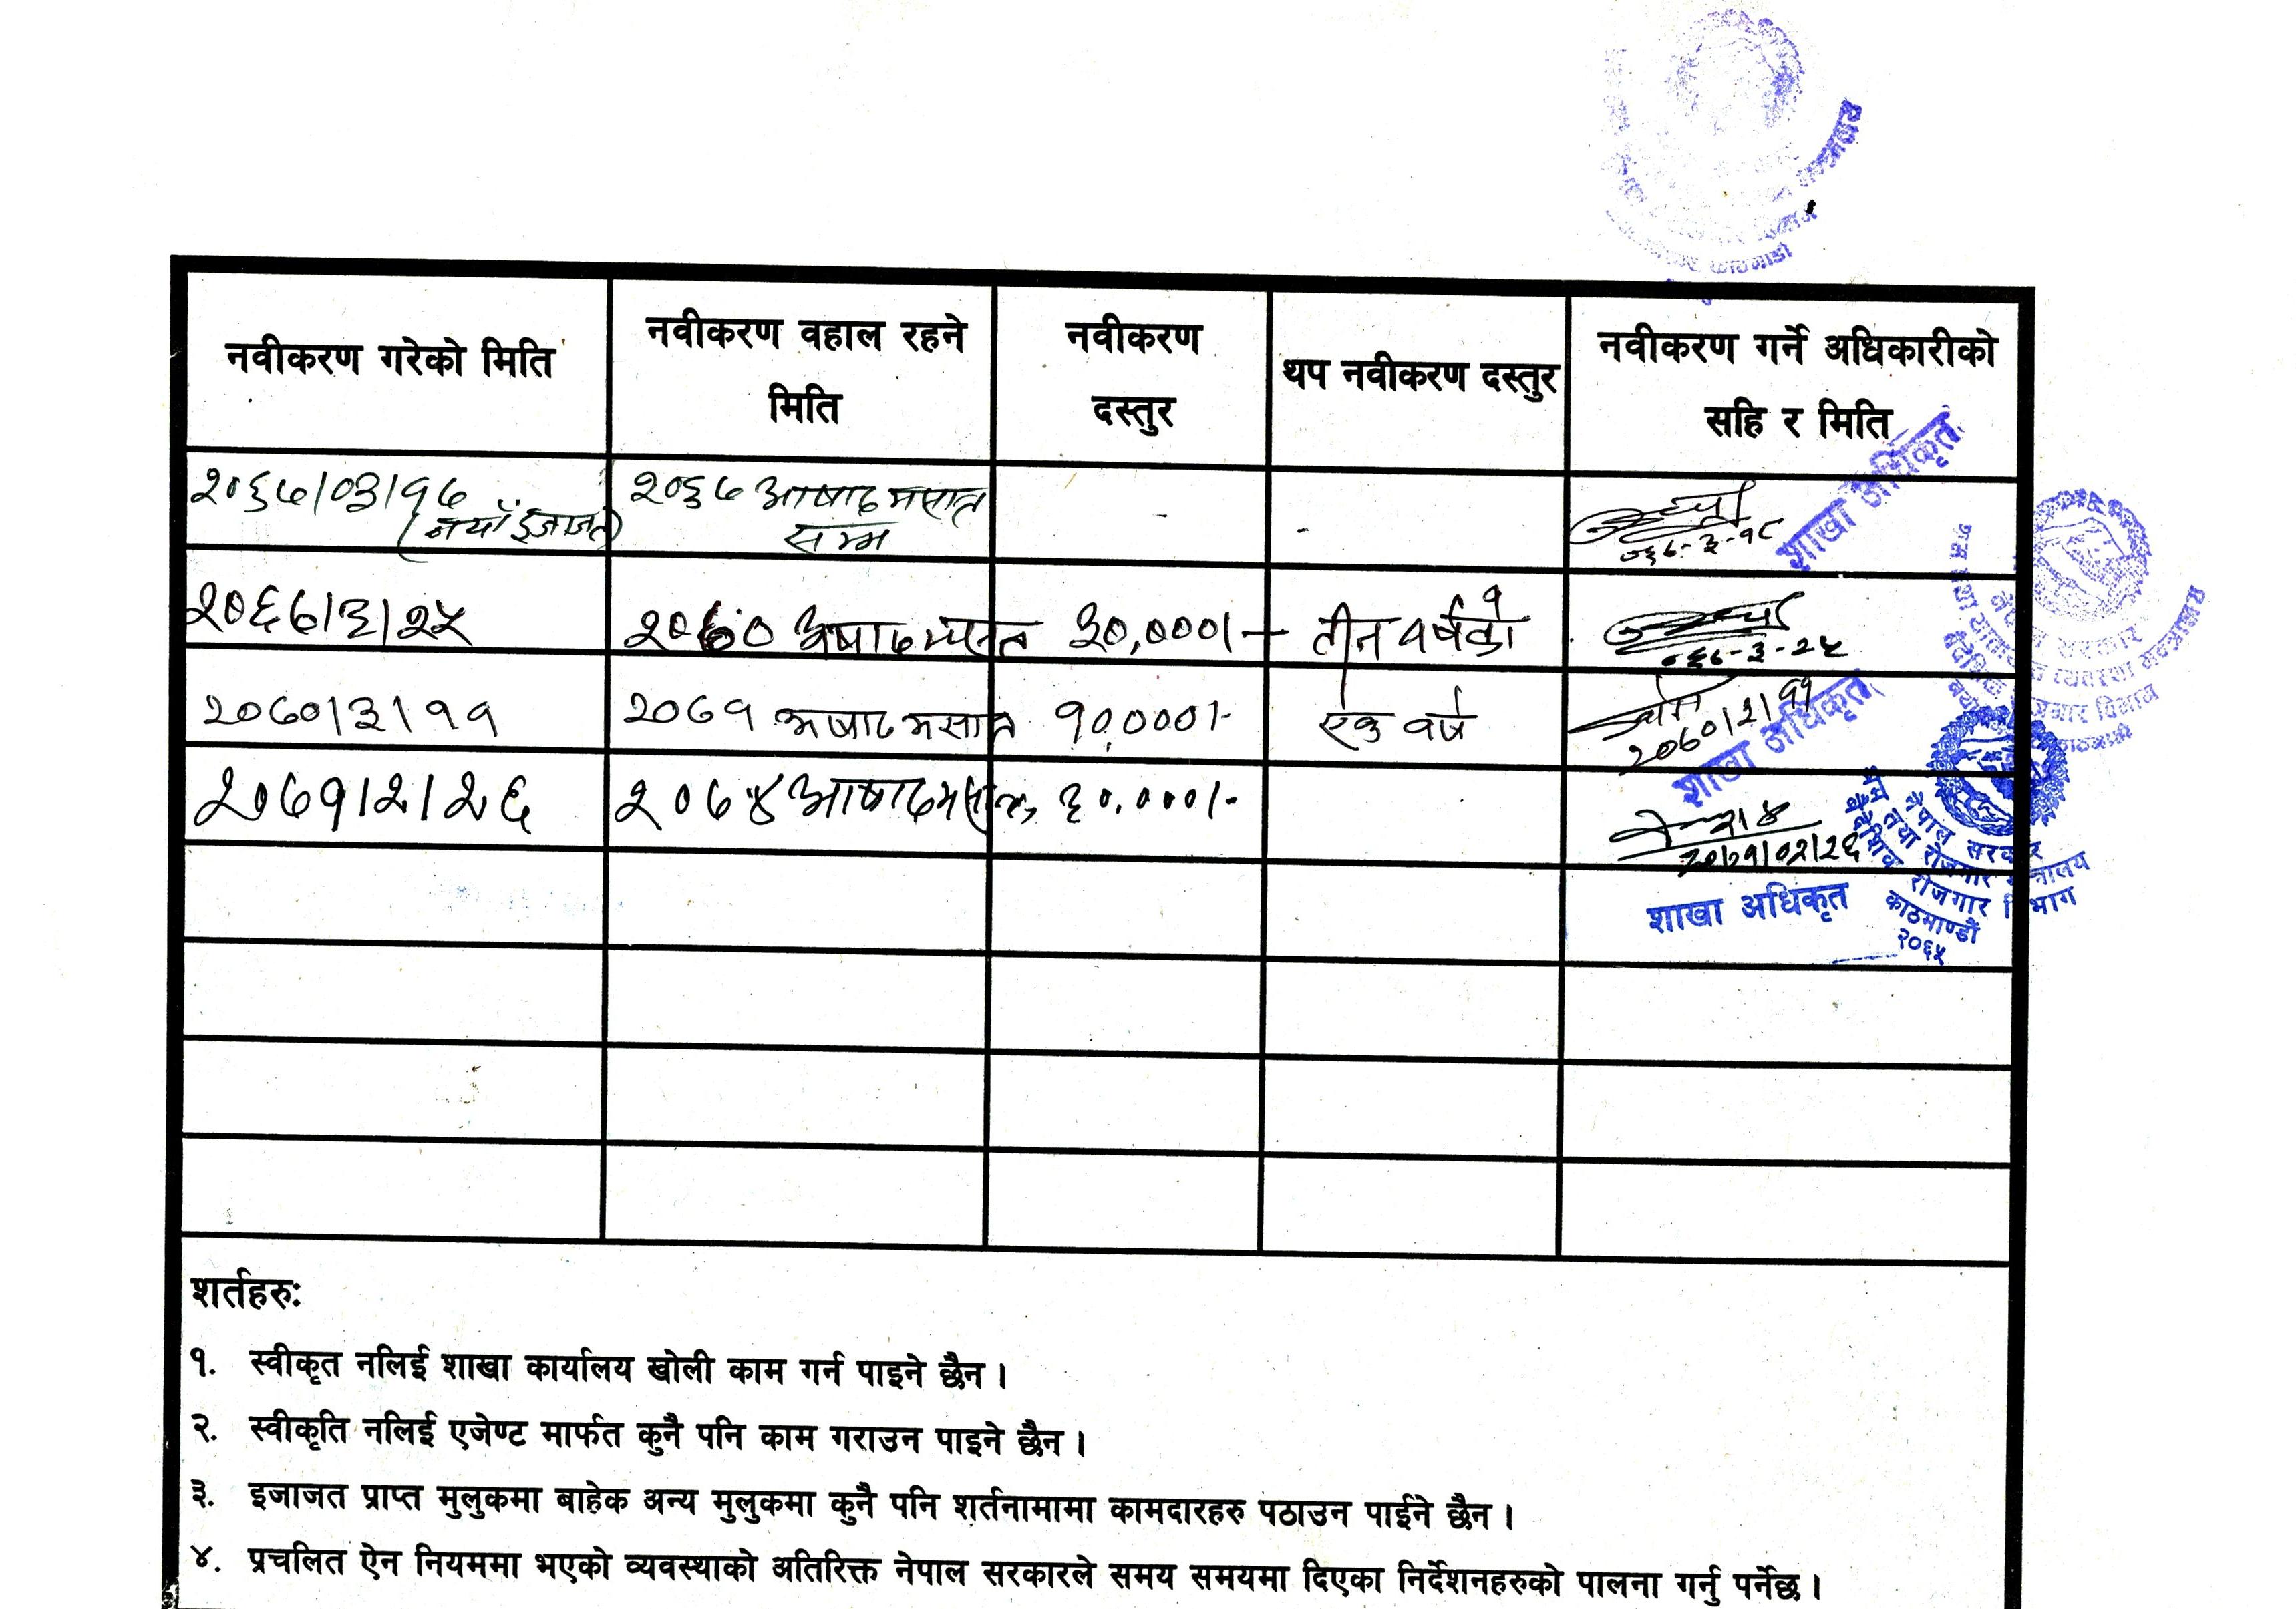 नवीकरण गरेको मिति
नवीकरण वहाल रहने
मिति
नवीकरण
दस्तुर
थप नवीकरण दस्तुर
नवीकरण गर्ने अधिकारीको
सहि र मिति
२०६७/०३/१७
(नयाँ इजाजत)
२०६७ आषाढ मसान्त
सम्म
-
-
शाखा अधिकृत
२०६७/३/२५
२०७० अषाढ मसान्त
३०,०००/-
तीन वर्षको
२०७०/३/११
२०७१ अषाढ मसान्त
१०,०००/-
एक वर्ष
शाखा अधिकृत
२०७१/२/२६
२०७४ आषाढ मसान्त
३०,०००/-
२०७१/०२/२६
शाखा अधिकृत
नेपाल सरकार
श्रम तथा रोजगार मन्त्रालय
वैदेशिक रोजगार विभाग
काठमाण्डौं
२०६५
शर्तहरु:
१. स्वीकृत नलिई शाखा कार्यालय खोली काम गर्न पाइने छैन ।
२. स्वीकृति नलिई एजेण्ट मार्फत कुनै पनि काम गराउन पाइने छैन ।
३. इजाजत प्राप्त मुलुकमा बाहेक अन्य मुलुकमा कुनै पनि शर्तनामामा कामदारहरु पठाउन पाईने छैन ।
४. प्रचलित ऐन नियममा भएको व्यवस्थाको अतिरिक्त नेपाल सरकारले समय समयमा दिएका निर्देशनहरुको पालना गर्नु पर्नेछ ।